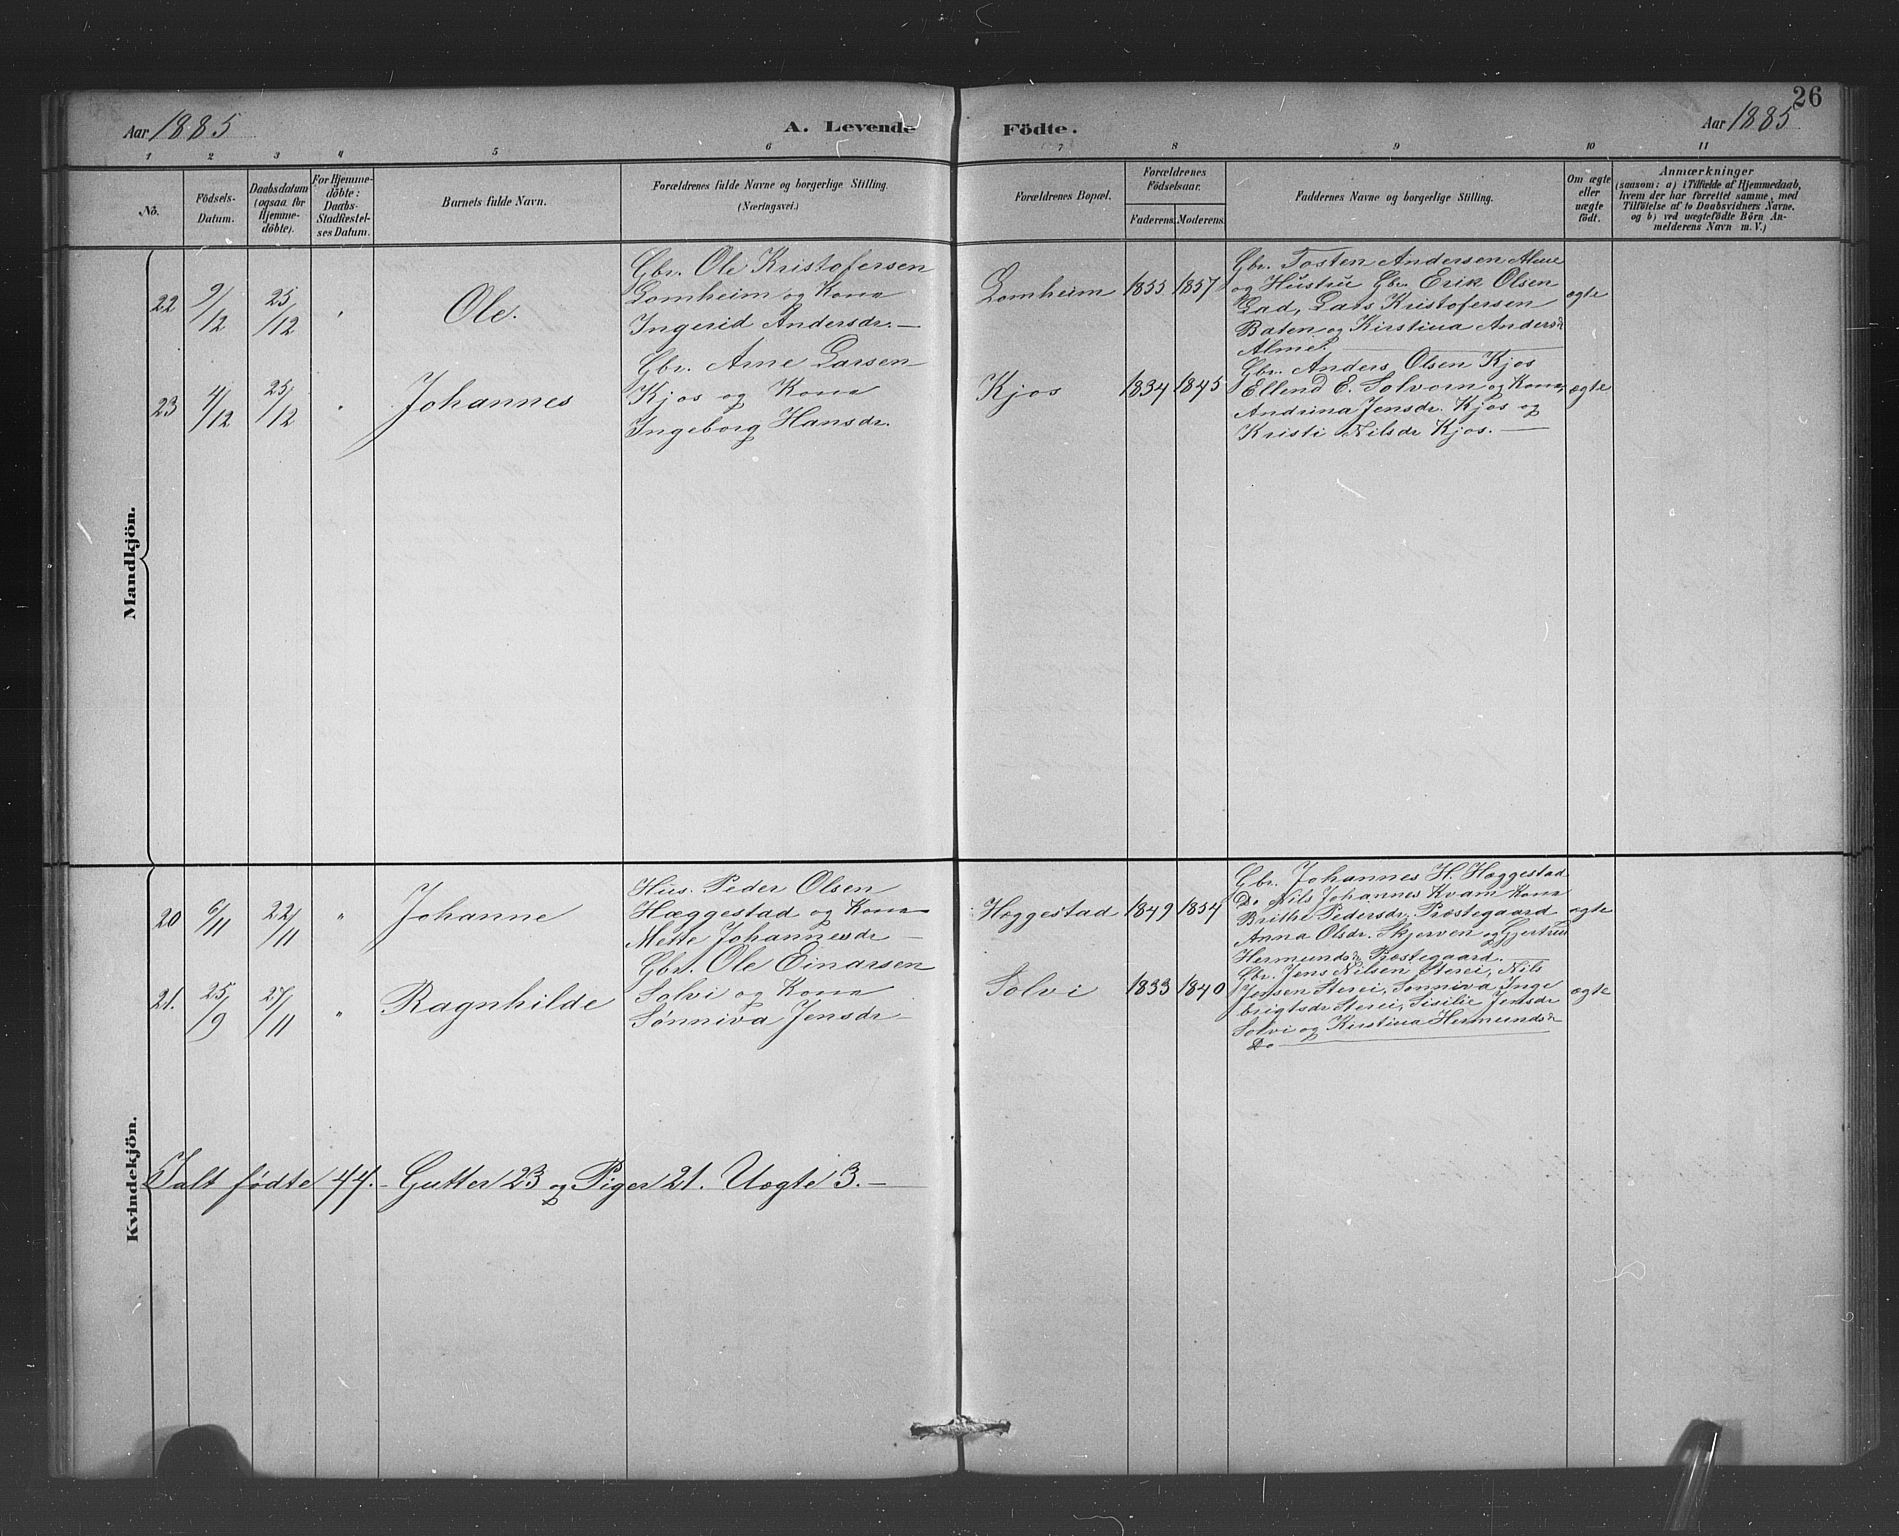 26
Aar 1885
A. Levende Födte.
Aar 1885
1 2 3 4 5 6 7 8 9 10 11
No.
Födsels-
Datum.
Daabsdatum
(ogsaa for
Hjemme-
döbte).
For Hjemme-
döbte:
Daabs-
Stadfæstel-
ses Datum.
Barnets fulde Navn.
Forældrenes fulde Navne og borgerlige Stilling.
(Næringsvei.)
Forældrenes Bopæl.
Forældrenes
Födselsaar.
Faderens. Moderens.
Faddernes Navne og borgerlige Stilling.
Om ægte
eller
uægte
födt.
Anmærkninger
(saasom: a) i Tilfælde af Hjemmedaab,
hvem der har forrettet samme, med
Tilföielse af to Daabsvidners Navne.
og b) ved uegtefödte Börn An-
melderens Navn m. V.)
Mandkjön.
22
9/12
25/12
"
Ole.
Gbr. Ole Kristofersen
Lomheim og Kona
Ingerid Andersdr.—
Lomheim
1855 1857
Gbr. Tosten Andersen Alme
og Hustru Gbr. Erik Olsen
Gad, Lars Kristofersen
Baten og Kirstina Andersdr
Alme.
ægte
23
4/12
25/12
"
Johannes
Gbr. Arne Larsen
Kjos og Kona
Ingeborg Hansdr.
Kjos
1834 1845
Gbr. Anders Olsen Kjos
Ellend E. Solvorn og Kona,
Andrina Jensdr. Kjos og
Kristi Nilsdr Kjos.—
ægte
Kvindekjön.
20
6/11
22/11
"
Johanne
Hus. Peder Olsen
Hæggestad og Kona
Mette Johannesdr—
Hæggestad
1849 1854
Gbr. Johannes H. Hæggestad
Do Nils Johannes Kvam Kona
Brithe Pedersdr. Prostegaard
Anna Olsdr. Skjerven og Gjertrud
Hermundsdr Prostegaard.
ægte
21.
25/9
27/11
"
Ragnhilde
Gbr. Ole Einarsen
Solvi og Kona
Sønniva Jensdr—
Solvi
1833 1840
Gbr. Jens Nilsen Sterei, Nils
Jensen Sterei, Sønniva Inge
brigtsdr Sterei, Sisilie Jensdr
Solvi og Kirstina Hermundsdr
Do
ægte
Ialt fødte 44.- Gutter 23 og Piger 21. Uægte 3.—